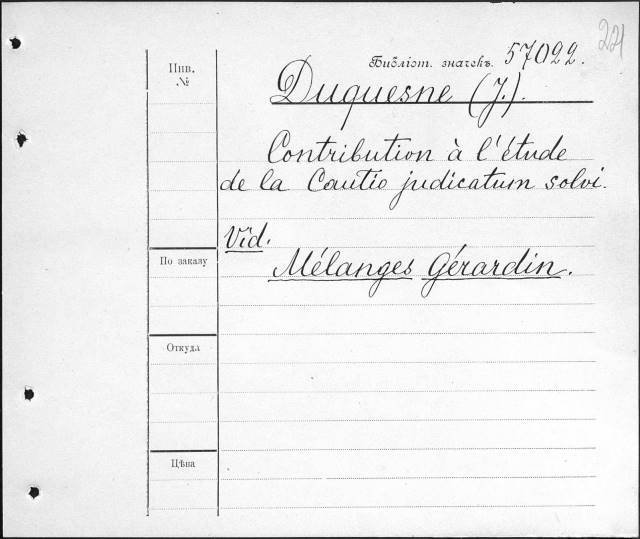 221
Инв. №
Библіот. значекъ. 57022.
Duquesne (J.).
Contribution à l'étude
de la Cautio judicatum solvi.
Vid.
Mélanges Gérardin.
По заказу
Откуда
Цѣна